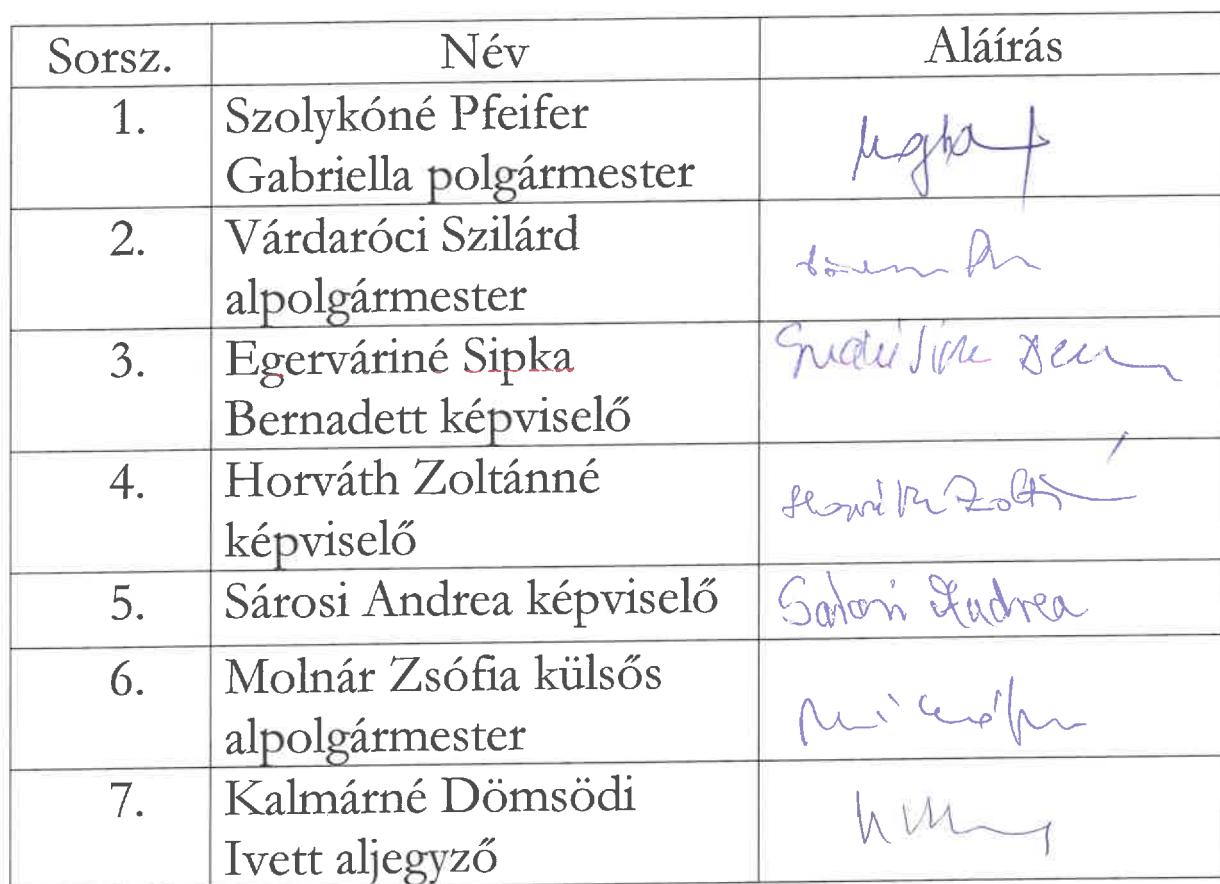 Sorsz. Név Aláírás
1. Szolykóné Pfeifer
Gabriella polgármester
2. Várdaróci Szilárd
alpolgármester
3. Egerváriné Sipka
Bernadett képviselő
4. Horváth Zoltánné
képviselő
Horváth Zoltánné
5. Sárosi Andrea képviselő Sárosi Andrea
6. Molnár Zsófia külsős
alpolgármester
7. Kalmárné Dömsödi
Ivett aljegyző